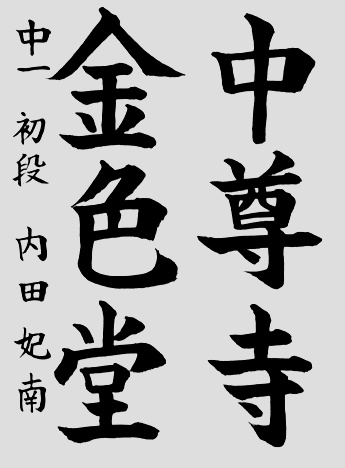 中尊寺
金色堂
中一 初段 内田妃南